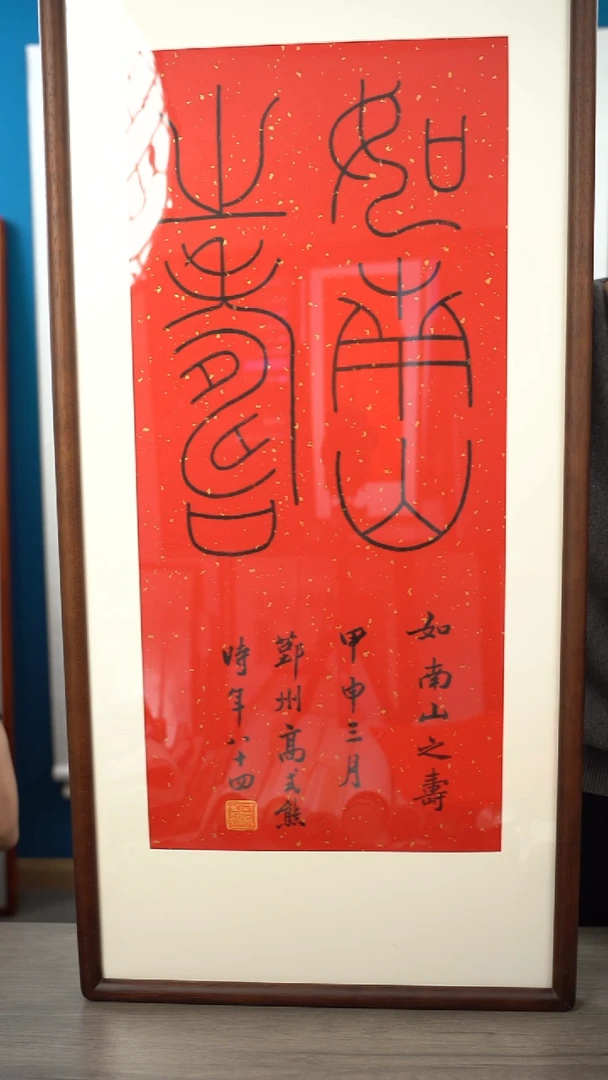 如南山
之壽
如南山之壽
甲申三月
鄞州高式熊
時年八十四